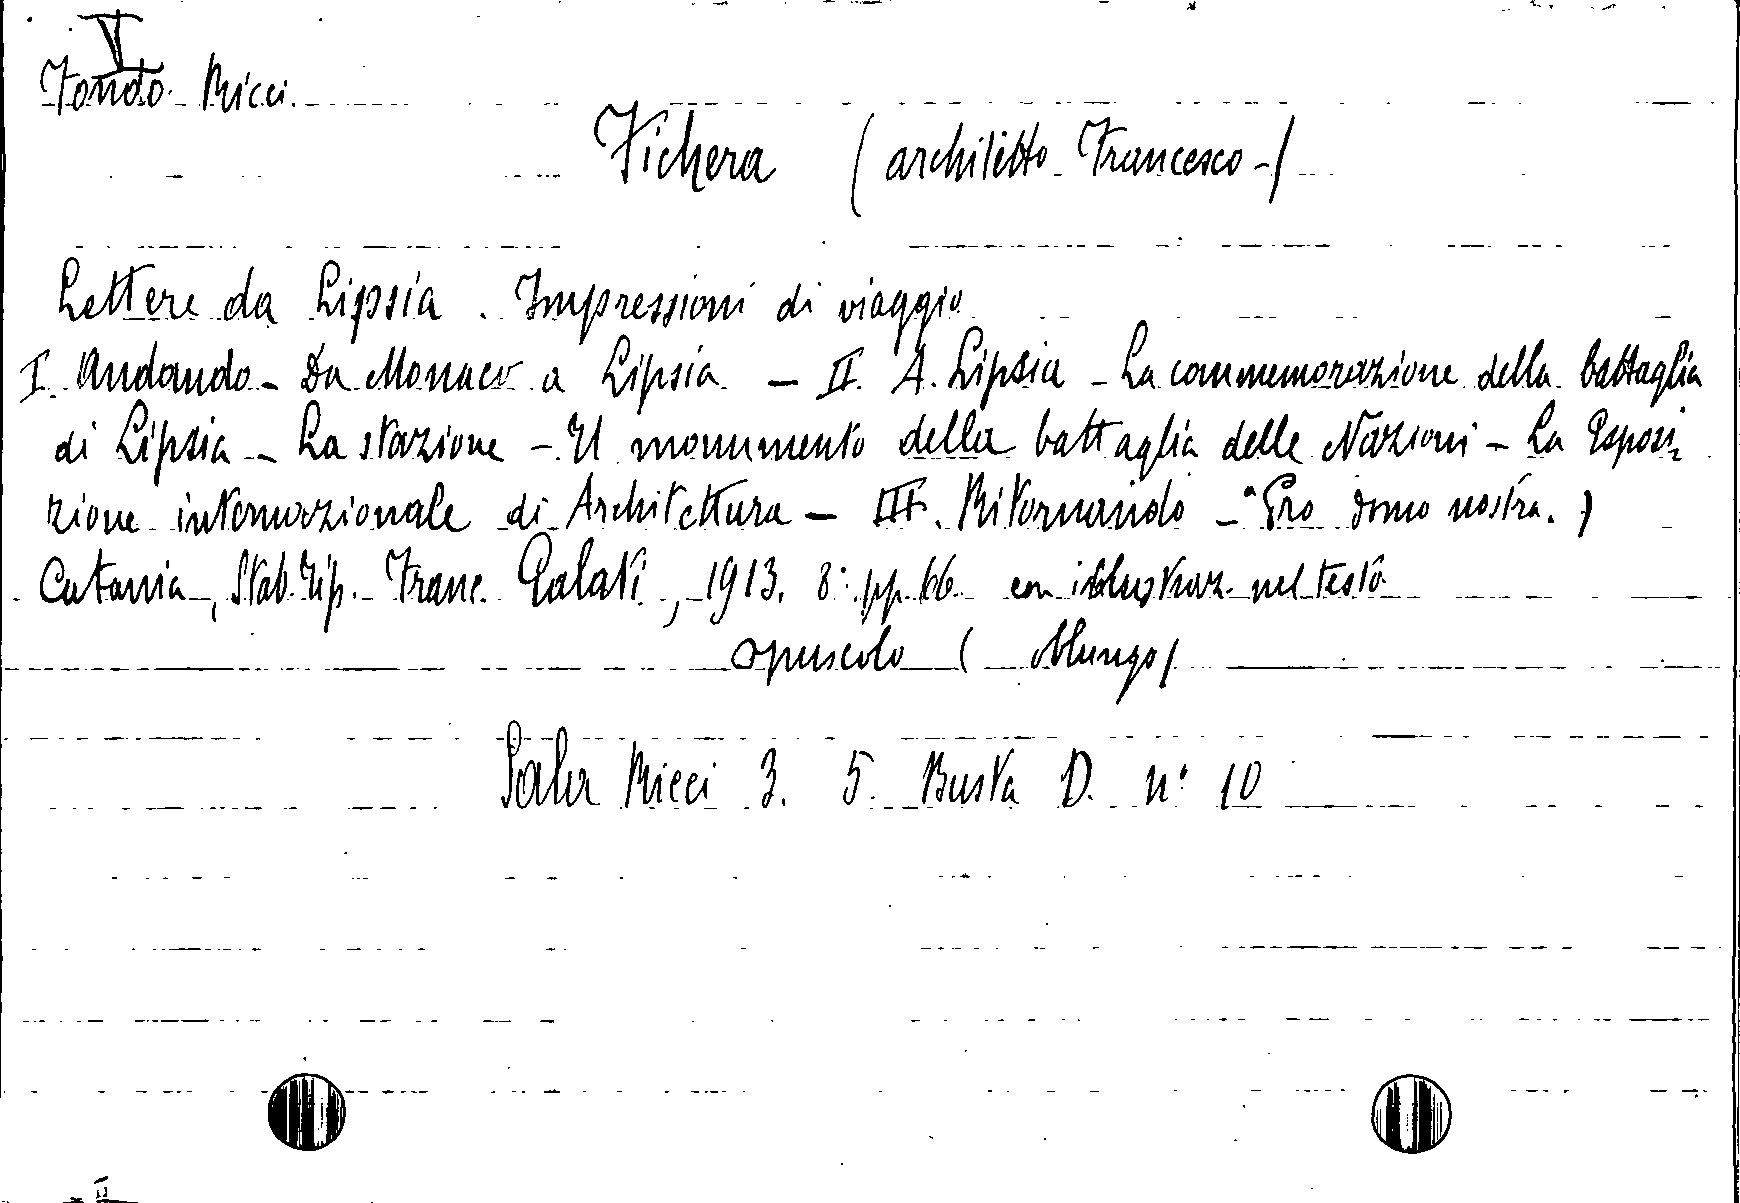 V
Fondo Ricci
Fichera (architetto Francesco -)
Lettere da Lipsia. Impressioni di viaggio
I. Andando - Da Monaco a Lipsia - II. A Lipsia - La commemorazione della battaglia
di Lipsia - La stazione - Il monumento della battaglia delle Nazioni - La Esposi
zione internazionale di Architettura - III. Ritornando - "Pro domo nostra.)
Catania, Stab. Tip. Franc. Galati, 1913. 8° pp. 66 con illustraz. nel testo
opuscolo (oblungo)
Sala Ricci 3. 5. Busta D. n° 10